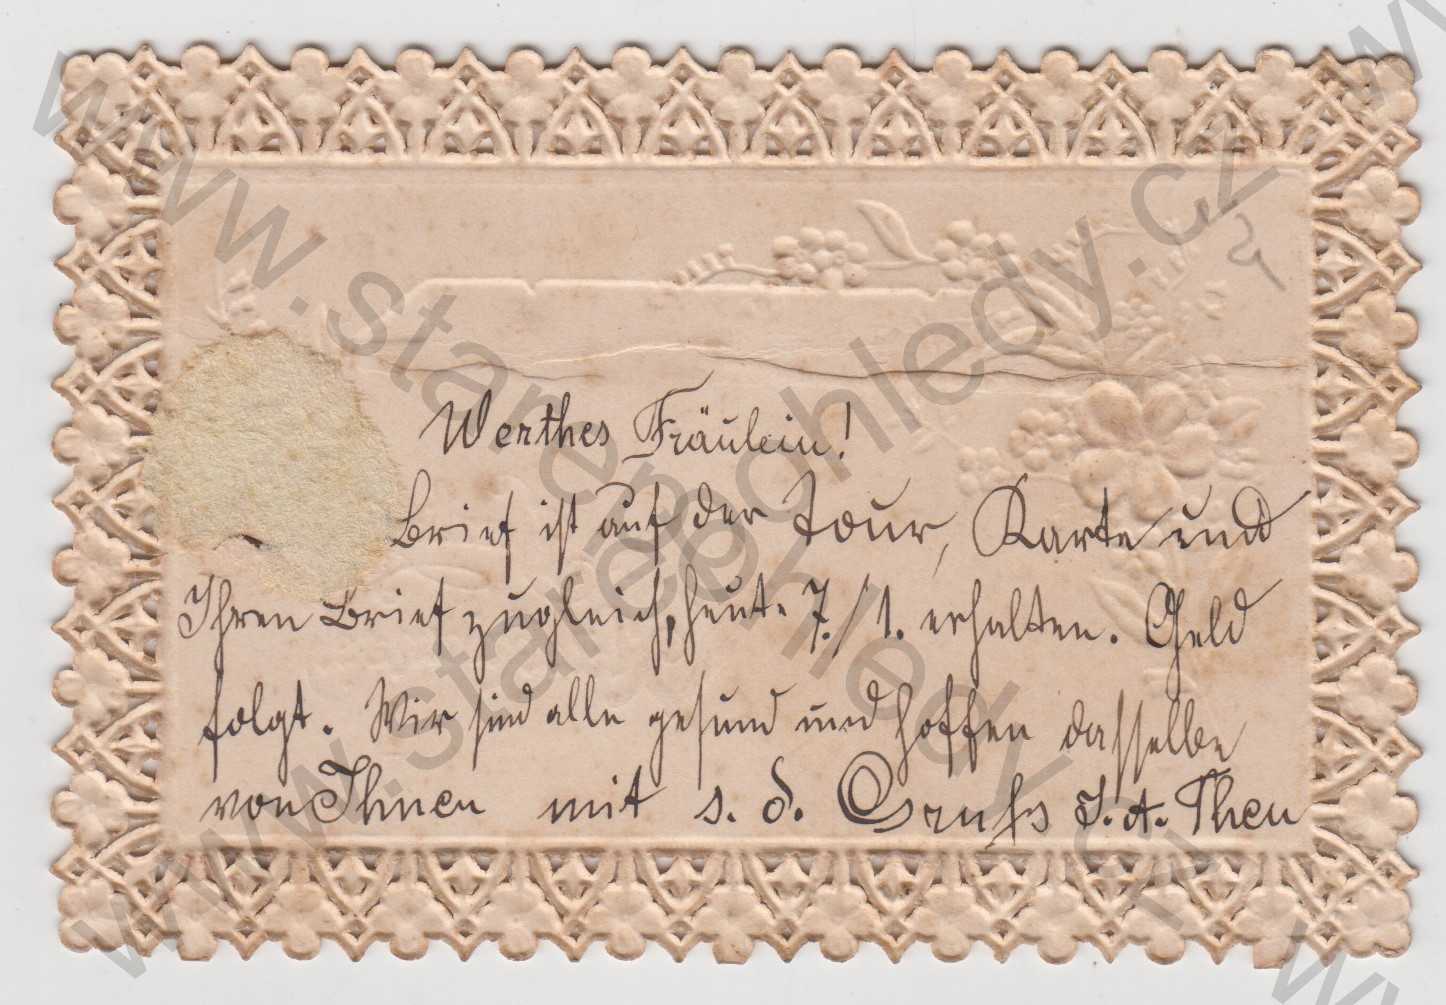 Werthes Fräulein!
Brief ist auf der Tour, Karte und
Ihren Brief zugleich, heute 7./1. erhalten. Geld
folgt. Wir sind alle gesund und hoffen dasselbe
von Ihnen mit s. d. Gruß J. A. Theu
www.starepohledy.cz
www.starepohledy.cz